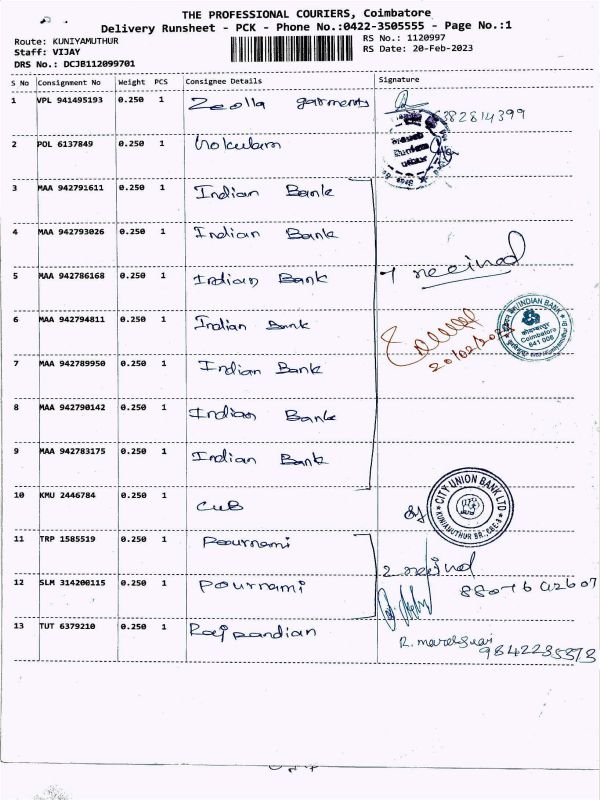 THE PROFESSIONAL COURIERS, Coimbatore
Delivery Runsheet - PCK - Phone No.:0422-3505555 - Page No.:1
Route: KUNIYAMUTHUR RS No.: 1120997
Staff: VIJAY RS Date: 20-Feb-2023
DRS No.: DCJB112099701
S No Consignment No Weight PCS Consignee Details Signature
1 VPL 941495193 0.250 1 Zeolla garments 6382814399
2 POL 6137849 0.250 1 Gokulam
3 MAA 942791611 0.250 1 Indian Bank
4 MAA 942793026 0.250 1 Indian Bank
5 MAA 942786168 0.250 1 Indian Bank 7 received
6 MAA 942794811 0.250 1 Indian Bank
INDIAN BANK
Coimbatore
641 008
20/02/2023
7 MAA 942789950 0.250 1 Indian Bank
8 MAA 942790142 0.250 1 Indian Bank
9 MAA 942783175 0.250 1 Indian Bank
10 KMU 2446784 0.250 1 CUB
CITY UNION BANK LTD
KUNIAMUTHUR BR., CBE-8
11 TRP 1585519 0.250 1 Pournami
2 received
12 SLM 314200115 0.250 1 Pournami 8807642607
13 TUT 6379210 0.250 1 Rajpandian
9842235373